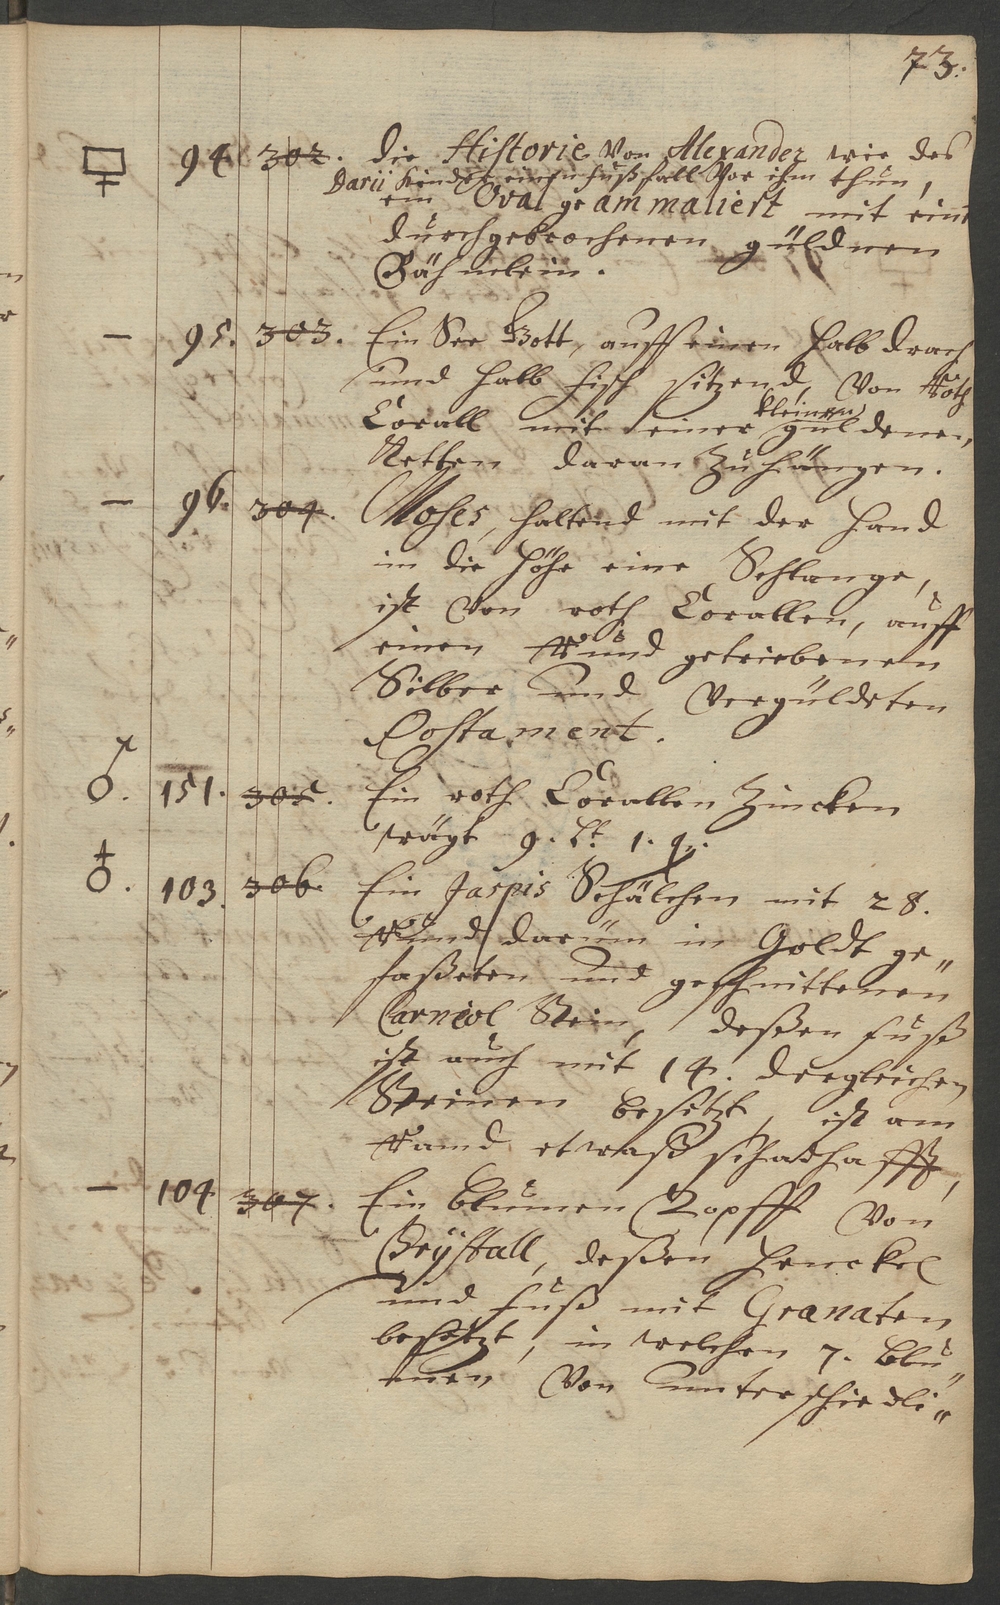 73.
94. 302. die Historie Von Alexander wie des
Darii Kinder einen fußfall Vor ihm thun,
ein Oval geammaliert mit einē
durchgebrochenen güldnen
Rähmlein.
— 95. 303. Ein See Gott, auff einen halb drach
und halb fisch sitzend, Von Roth
kleinen
Corall mit einer güldenen,
Ketten daran Zu hängen.
— 96. 304. Moses, haltend mit der Hand
in die Höhe eine Schlange,
ist Von roth Corallen, auff
einen Rund getriebenen
Silber und Vergüldeten
Postament.
♂. 151. 305. Ein roth Corallen Zincken
wägt 9. Lt. 1. q.
♁. 103. 306. Ein Jaspis Schälchen mit 28.
Rund darüm in Goldt ge„
faßeten und geschnittenen
Carniol Stein, deßen fuß
ist auch mit 14. dergleichen
Steinen besetzt, ist am
Rand etwaß schadhafft,
— 104 307. Ein Blumen Topfft Von
Crystall, deßen Henckel
und fuß mit Granaten
besetzt, in welchen 7. Blu„
men Von unterschiedli„